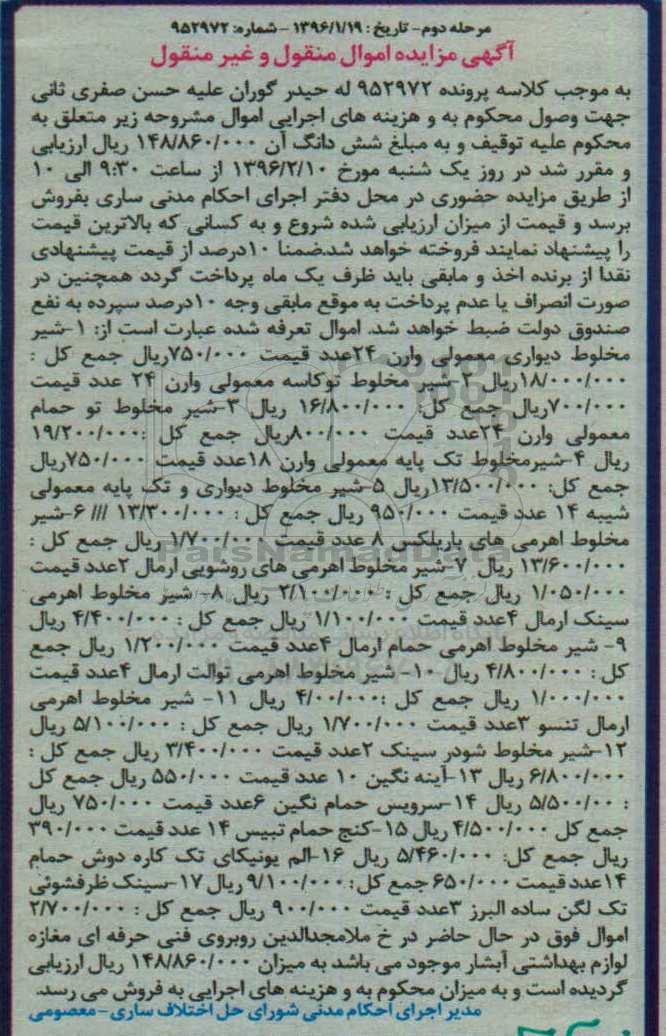 مرحله دوم- تاریخ : ۱۳۹۶/۱/۱۹ - شماره: ۹۵۲۹۷۲
آگهی مزایده اموال منقول و غیر منقول
به موجب کلاسه پرونده ۹۵۲۹۷۲ له حیدر گوران علیه حسن صفری ثانی
جهت وصول محکوم به و هزینه های اجرایی اموال مشروحه زیر متعلق به
محکوم علیه توقیف و به مبلغ شش دانگ آن ۱۴۸/۸۶۰/۰۰۰ ریال ارزیابی
و مقرر شد در روز یک شنبه مورخ ۱۳۹۶/۲/۱۰ از ساعت ۹:۳۰ الی ۱۰
از طریق مزایده حضوری در محل دفتر اجرای احکام مدنی ساری بفروش
برسد و قیمت از میزان ارزیابی شده شروع و به کسانی که بالاترین قیمت
را پیشنهاد نمایند فروخته خواهد شد.ضمنا ۱۰درصد از قیمت پیشنهادی
نقدا از برنده اخذ و مابقی باید ظرف یک ماه پرداخت گردد همچنین در
صورت انصراف یا عدم پرداخت به موقع مابقی وجه ۱۰درصد سپرده به نفع
صندوق دولت ضبط خواهد شد. اموال تعرفه شده عبارت است از: ۱-شیر
مخلوط دیواری معمولی وارن ۲۴عدد قیمت ۷۵۰/۰۰۰ریال جمع کل :
۱۸/۰۰۰/۰۰۰ریال ۲-شیر مخلوط توکاسه معمولی وارن ۲۴ عدد قیمت
۷۰۰/۰۰۰ریال جمع کل: ۱۶/۸۰۰/۰۰۰ ریال ۳-شیر مخلوط تو حمام
معمولی وارن ۲۴عدد قیمت ۸۰۰/۰۰۰ریال جمع کل :۱۹/۲۰۰/۰۰۰
ریال ۴-شیرمخلوط تک پایه معمولی وارن ۱۸عدد قیمت ۷۵۰/۰۰۰ریال
جمع کل: ۱۳/۵۰۰/۰۰۰ریال ۵-شیر مخلوط دیواری و تک پایه معمولی
شیبه ۱۴ عدد قیمت ۹۵۰/۰۰۰ ریال جمع کل : ۱۳/۳۰۰/۰۰۰ /// ۶-شیر
مخلوط اهرمی های پاریلکس ۸ عدد قیمت ۱/۷۰۰/۰۰۰ ریال جمع کل :
۱۳/۶۰۰/۰۰۰ ریال ۷-شیر مخلوط اهرمی های روشویی ارمال ۲عدد قیمت
۱/۰۵۰/۰۰۰ ریال جمع کل : ۲/۱۰۰/۰۰۰ ریال ۸- شیر مخلوط اهرمی
سینک ارمال ۴عدد قیمت ۱/۱۰۰/۰۰۰ ریال جمع کل : ۴/۴۰۰/۰۰۰ ریال
۹- شیر مخلوط اهرمی حمام ارمال ۴عدد قیمت ۱/۲۰۰/۰۰۰ ریال جمع
کل : ۴/۸۰۰/۰۰۰ ریال ۱۰- شیر مخلوط اهرمی توالت ارمال ۴عدد قیمت
۱/۰۰۰/۰۰۰ ریال جمع کل :۴/۰۰/۰۰۰ ریال ۱۱- شیر مخلوط اهرمی
ارمال تنسو ۳عدد قیمت ۱/۷۰۰/۰۰۰ ریال جمع کل : ۵/۱۰۰/۰۰۰ ریال
۱۲-شیر مخلوط شودر سینک ۲عدد قیمت ۳/۴۰۰/۰۰۰ ریال جمع کل :
۶/۸۰۰/۰۰۰ ریال ۱۳-آینه نگین ۱۰ عدد قیمت ۵۵۰/۰۰۰ ریال جمع کل
: ۵/۵۰۰/۰۰ ریال ۱۴-سرویس حمام نگین ۶عدد قیمت ۷۵۰/۰۰۰ ریال
جمع کل ۴/۵۰۰/۰۰۰ ریال ۱۵-کنج حمام تبیس ۱۴ عدد قیمت ۳۹۰/۰۰۰
ریال جمع کل: ۵/۴۶۰/۰۰۰ ریال ۱۶-الم یونیکای تک کاره دوش حمام
۱۴عدد قیمت ۶۵۰/۰۰۰ جمع کل: ۹/۱۰۰/۰۰۰ ریال ۱۷-سینک ظرفشوئی
تک لگن ساده البرز ۳عدد قیمت ۹۰۰/۰۰۰ ریال جمع کل : ۲/۷۰۰/۰۰۰
اموال فوق در حال حاضر در خ ملامجدالدین روبروی فنی حرفه ای مغازه
لوازم بهداشتی آبشار موجود می باشد به میزان ۱۴۸/۸۶۰/۰۰۰ ریال ارزیابی
گردیده است و به میزان محکوم به و هزینه های اجرایی به فروش می رسد.
مدیر اجرای احکام مدنی شورای حل اختلاف ساری - معصومی
ParsNamadData